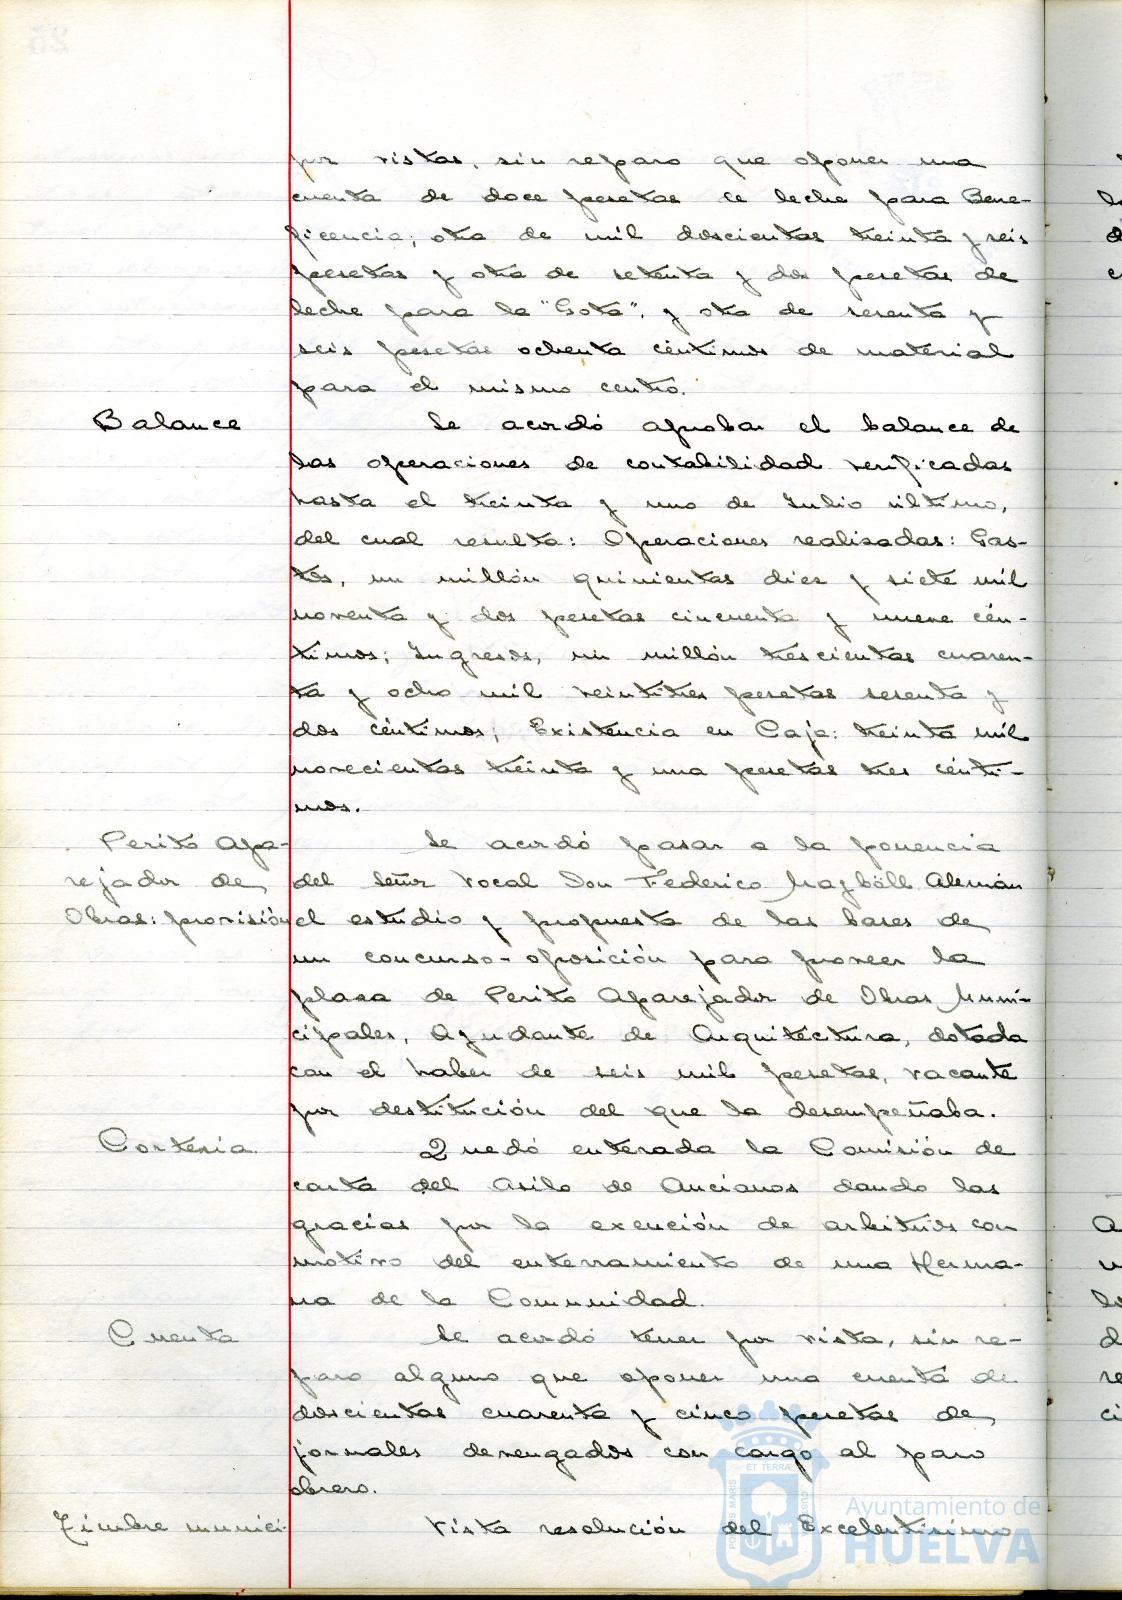 por vistas, sin reparo que oponer una
cuenta de doce pesetas de leche para Bene-
ficencia; otra de mil doscientas treinta y seis
pesetas y otra de setenta y dos pesetas de
leche para la "Gota", y otra de sesenta y
seis pesetas ochenta céntimos de material
para el mismo centro.
Balance
Se acordó aprobar el balance de
las operaciones de contabilidad verificadas
hasta el treinta y uno de Julio último,
del cual resulta: Operaciones realizadas: Gas-
tos, un millón quinientas diez y siete mil
noventa y dos pesetas cincuenta y nueve cén-
timos; Ingresos, un millón trescientas cuaren-
ta y ocho mil veintitres pesetas sesenta y
dos céntimos; Existencia en Caja: treinta mil
novecientas treinta y una pesetas tres cénti-
mos.
Perito Apa-
rejador de
Obras: provisión
Se acordó pasar a la ponencia
del Señor Vocal Don Federico Mayböll Alemán
el estudio y propuesta de las bases de
un concurso-oposición para proveer la
plaza de Perito Aparejador de Obras Muni-
cipales, Ayudante de Arquitectura, dotada
con el haber de seis mil pesetas, vacante
por destitución del que la desempeñaba.
Cortesía
Quedó enterada la Comisión de
carta del Asilo de Ancianos dando las
gracias por la exención de arbitrios con
motivo del enterramiento de una Herma-
na de la Comunidad.
Cuenta
Se acordó tener por vista, sin re-
paro alguno que oponer una cuenta de
doscientas cuarenta y cinco pesetas de
jornales devengados con cargo al paro
obrero.
Timbre munici-
Vista resolución del Excelentísimo
Ayuntamiento de
HUELVA